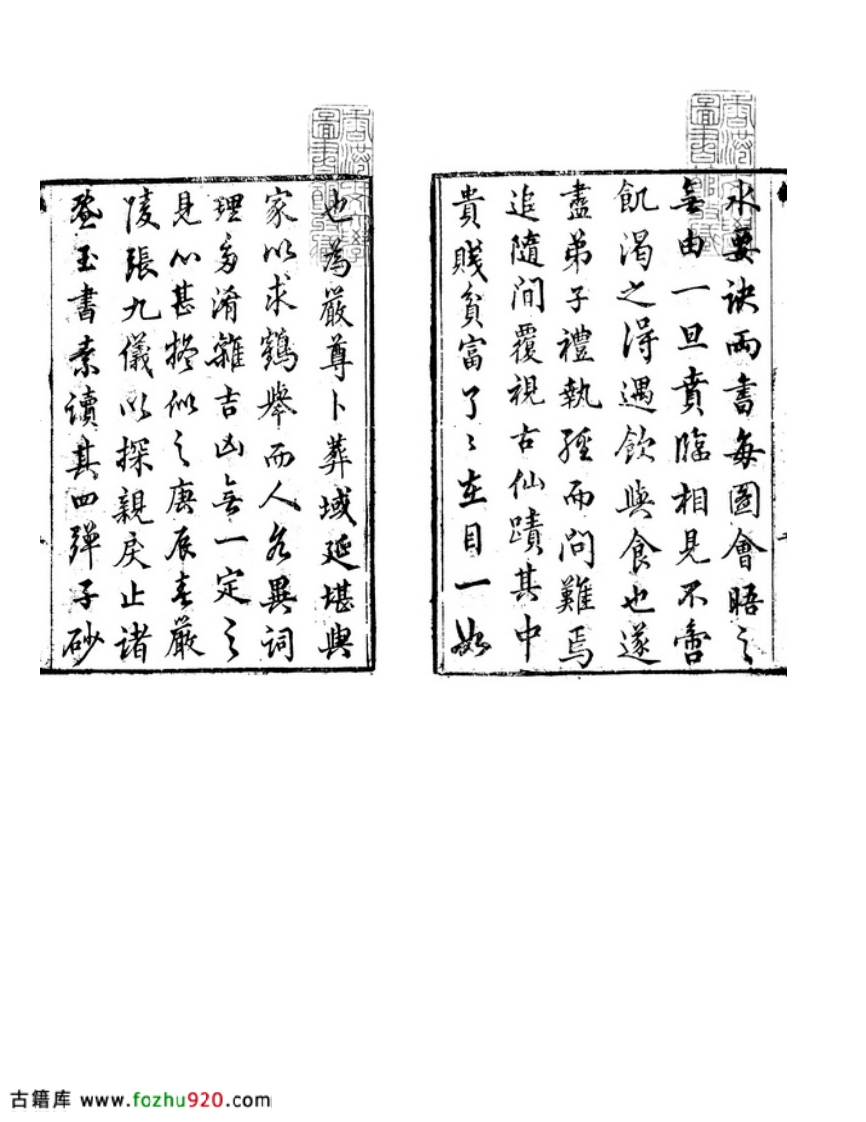 也為嚴尊卜葬域延堪輿
家以求鶴舉而人各異詞
理多淆雜吉凶無一定之
見心甚擬似之庚辰春嚴
陵張九儀以探親戾止諸
暨玉書素讀其四彈子砂
水要訣兩書每圖會晤之
無由一旦賁臨相見不啻
飢渴之得遇飲與食也遂
盡弟子禮執經而問難焉
追隨間覆視古仙蹟其中
貴賤貧富了〻在目一如
古籍库 www.fozhu920.com